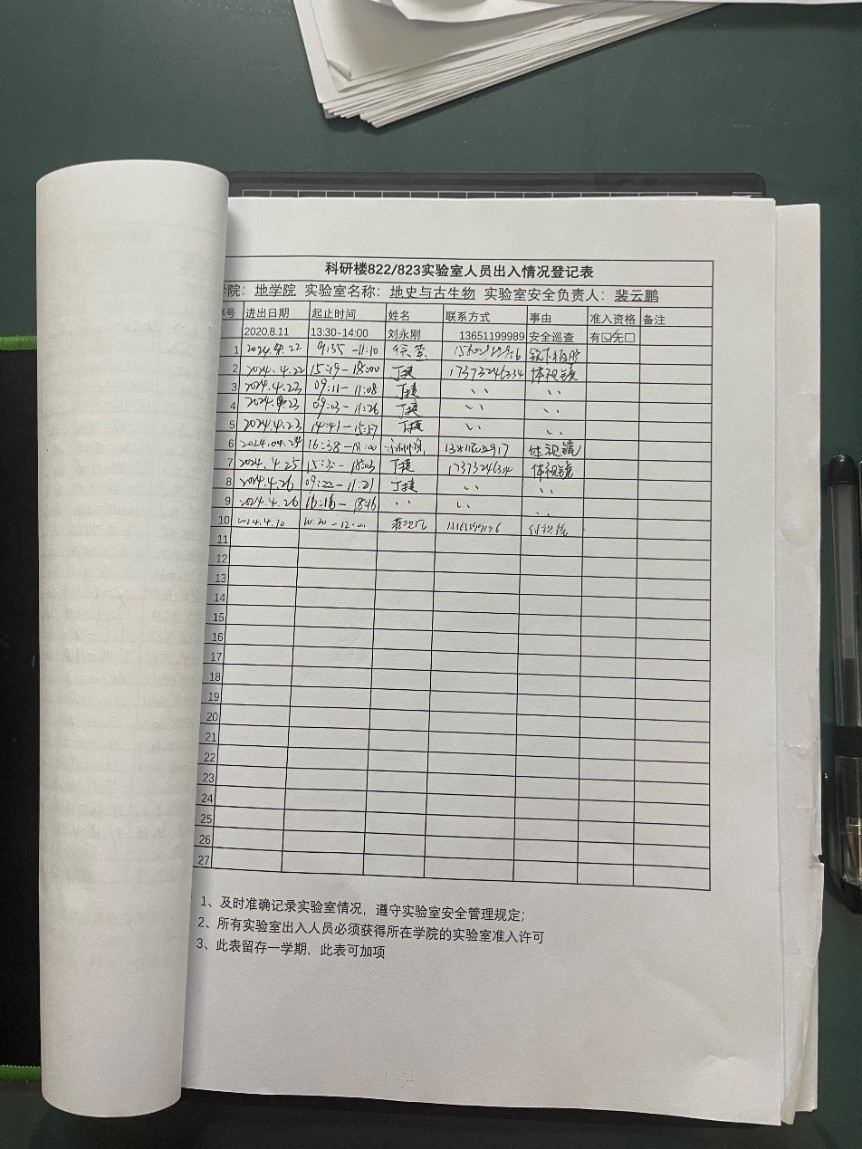 科研楼822/823实验室人员出入情况登记表
院：地学院 实验室名称：地史与古生物 实验室安全负责人：裴云鹏
号 进出日期 起止时间 姓名 联系方式 事由 准入资格 备注
2020.8.11 13:30-14:00 刘永刚 13651199989 安全巡查 有☑无☐
1 2024.4.22 9:35-11:10
2 2024.4.22 15:19-18:00 丁捷 17373246334 体视镜
3 2024.4.23 09:11-11:08 丁捷 、、 、、
4 2024.4.23 09:03-11:26 丁捷 、、 、、
5 2024.4.23 14:41- 丁捷 、、 、、
6 2024.04.24 16:38-18:00 体视镜
7 2024.4.25 丁捷 体视镜
8 2024.4.26 09:22-11:21 丁捷 、、 、、
9 2024.4.26 16:16-18:16 、、 、、 、、
10 2024.4.30
11
12
13
14
15
16
17
18
19
20
21
22
23
24
25
26
27
1、及时准确记录实验室情况，遵守实验室安全管理规定；
2、所有实验室出入人员必须获得所在学院的实验室准入许可
3、此表留存一学期，此表可加项